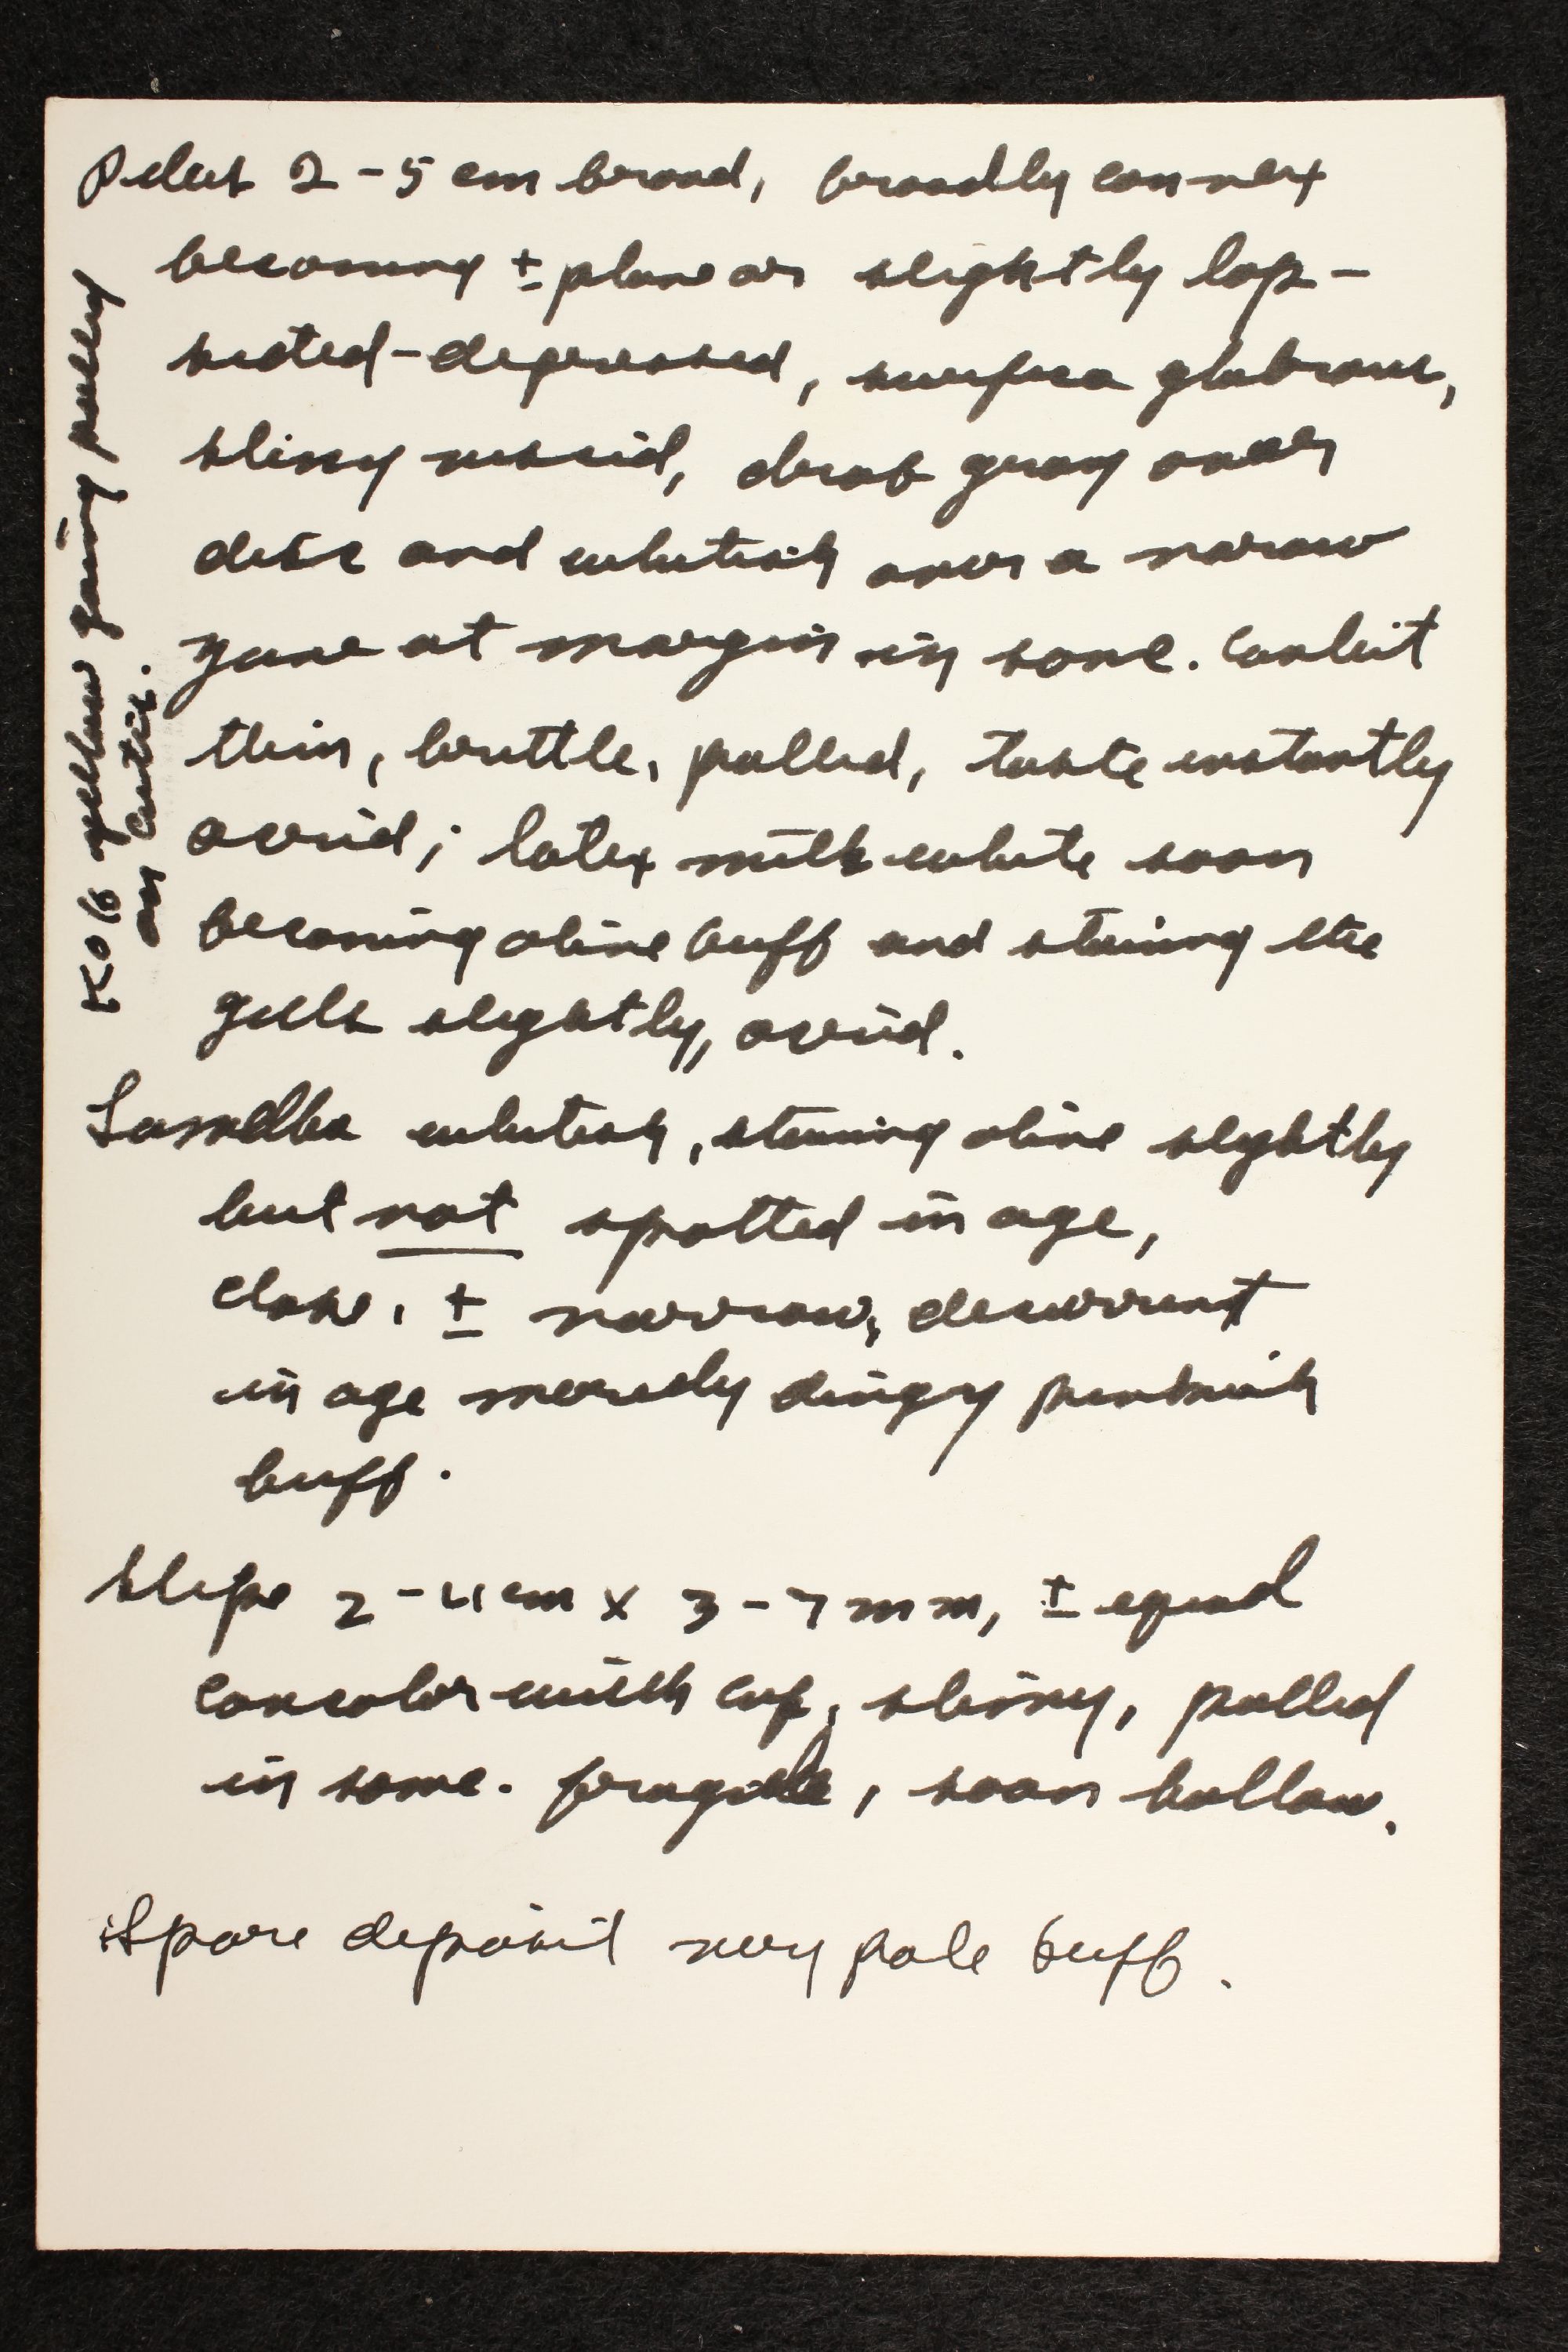 Pileus 2-5 cm broad, broadly convex
becoming ± plane or slightly lop-
sided-depressed, surface glabrous,
slimy viscid, drab gray over
disc and whitish over a narow
zone at margin in some. Context
thin, brittle, pallid, taste instantly
acrid; latex milk white soon
becoming olive buff and staining the
gills slightly, acrid.
Lamellae whitish, staining olive slightly
but not spotted in age,
close, ± narrow, decurrent
in age merely dingy pinkish
buff.
Stipe 2-4 cm x 3-7 mm, ± equal
concolor with cap, slimy, pallid
in some. fragile, soon hollow.
Spore deposit very pale buff.
KOH yellow going pallid
on cutis.